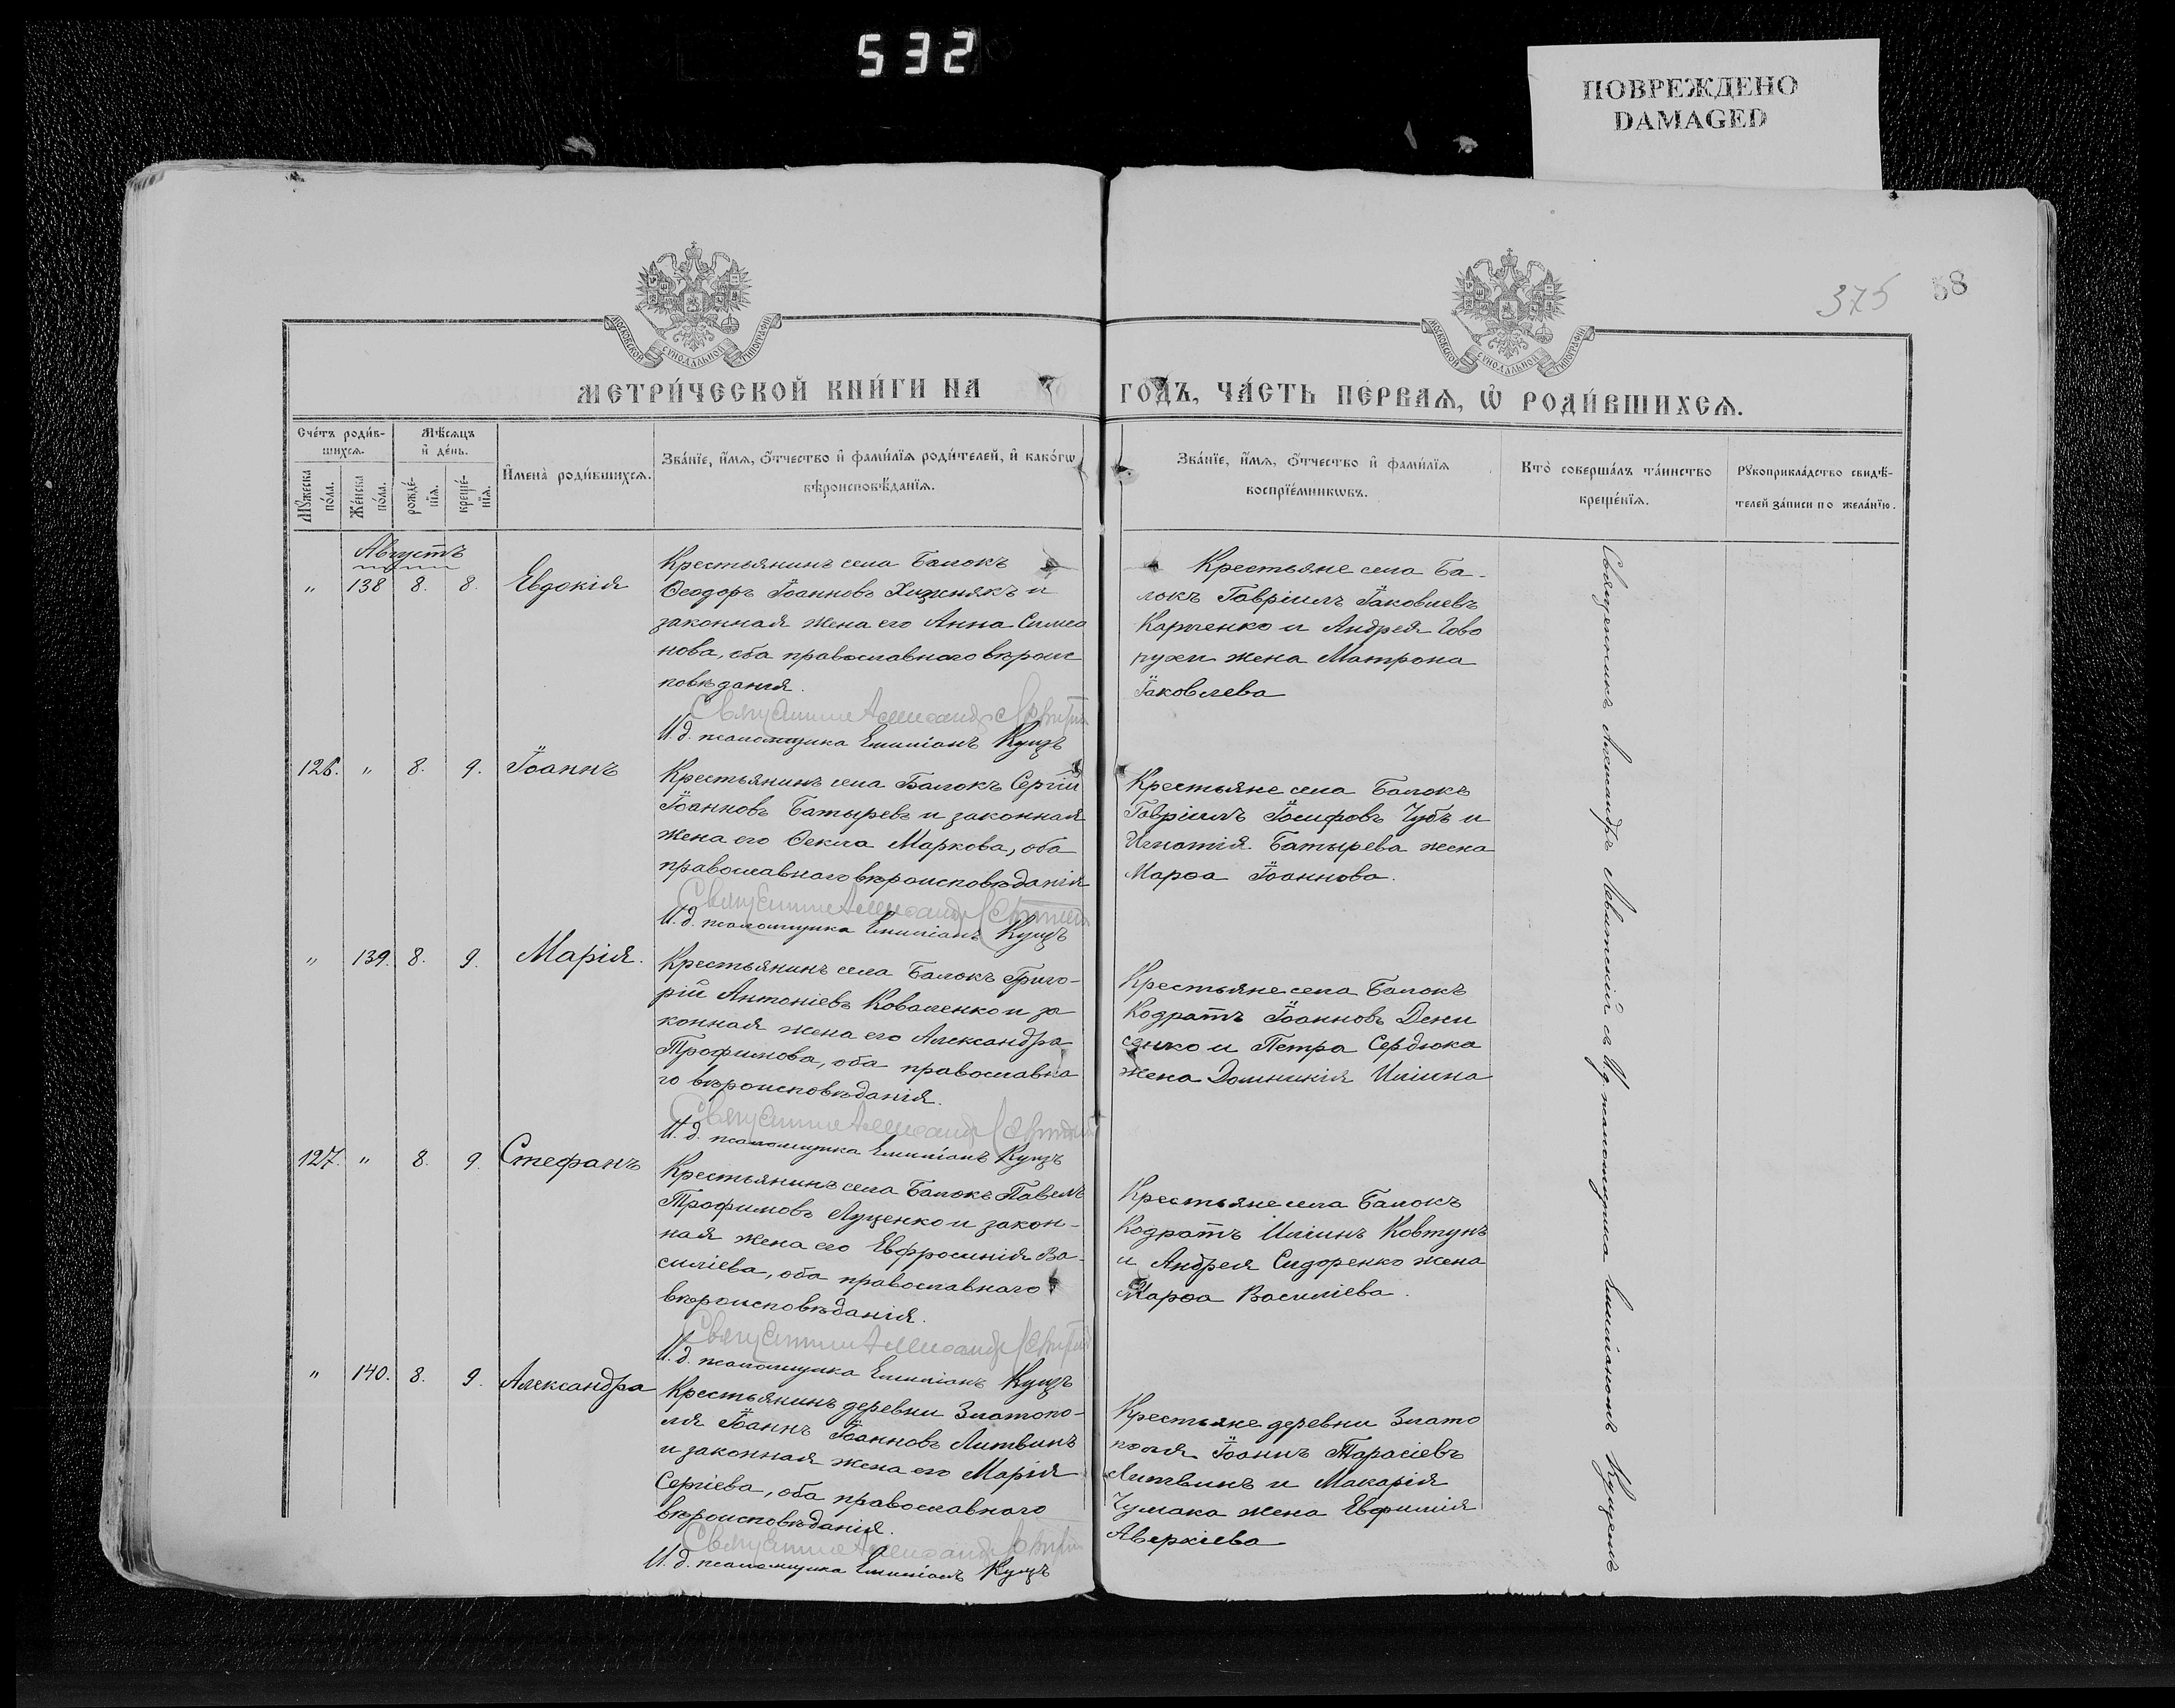 532
ПОВРЕЖДЕНО
DAMAGED
375
58
МОСКОВСКОЙ СУНОДАЛЬНОЙ ТИПОГРАФІИ
МОСКОВСКОЙ СУНОДАЛЬНОЙ ТИПОГРАФІИ
МЕТРИ́ЧЕСКОЙ КНИ́ГИ НА
ГОДЪ, ЧА́СТЬ ПЕ́РВАѦ, Ѡ҆ РОДИ́ВШИХСѦ.
Сче́тъ роди́в-
шихсѧ.
Мꙋ́жеска
по́ла.
Же́нска
по́ла.
Мѣ́сѧцъ
и҆ де́нь.
рожде́-
нїѧ.
креще́-
нїѧ.
И҆мена̀ роди́вшихсѧ.
Зва́нїе, и҆́мѧ, ѻ҆́тчество и҆ фами́лїѧ роди́телей, и҆ како́гѡ
вѣроисповѣ́данїѧ.
Зва́нїе, и҆́мѧ, ѻ҆́тчество и҆ фами́лїѧ
воспрїе́мникѡвъ.
Кто̀ соверша́лъ та́инство
креще́нїѧ.
Рꙋкоприкла́дство свидѣ́-
телей за́писи по жела́нїю.
Августъ
" 138 8. 8. Евдокія
Крестьянинъ села Балокъ
Ѳеодоръ Іоанновъ Хижнякъ и
законная жена его Анна Симео
нова, оба православнаго вѣроис
повѣданія.
Священникъ Александръ
И. д. псаломщика Емиліанъ Кущъ
Крестьяне села Ба-
локъ Гавріилъ Іаковлевъ
Карпенко и Андрея Гово
рухи жена Матрона
Іаковлева
126. " 8. 9. Іоаннъ
Крестьянинъ села Балокъ Сергій
Іоанновъ Батыревъ и законная
жена его Ѳекла Маркова, оба
православнаго вѣроисповѣданія
Священникъ Александръ
И. д. псаломщика Емиліанъ Кущъ
Крестьяне села Балокъ
Гавріилъ Іосифовъ Чубъ и
Игнатія Батырева жена
Марѳа Іоаннова.
" 139. 8. 9. Марія.
Крестьянинъ села Балокъ Григо-
рій Антоніевъ Коваленко и за
конная жена его Александра
Трофимова, оба православна
го вѣроисповѣданія.
Священникъ Александръ
И. д. псаломщика Емиліанъ Кущъ
Крестьяне села Балокъ
Кодратъ Іоанновъ Дени
сенко и Петра Сердюка
жена Домникія Иліина
127. " 8. 9. Стефанъ
Крестьянинъ села Балокъ Павелъ
Трофимовъ Луценко и закон-
ная жена его Евфросинія Ва-
силіева, оба православнаго
вѣроисповѣданія.
Священникъ Александръ
И. д. псаломщика Емиліанъ Кущъ
Крестьяне села Балокъ
Кодратъ Иліинъ Ковтунъ
и Андрея Сидоренко жена
Марѳа Василіева.
" 140. 8. 9. Александра
Крестьянинъ деревни Златопо-
ля Іоаннъ Іоанновъ Литвинъ
и законная жена его Марія
Сергіева, оба православнаго
вѣроисповѣданія.
Священникъ Александръ
И. д. псаломщика Емиліанъ Кущъ
Крестьяне деревни Злато
поля Іоаннъ Тарасіевъ
Литвинъ и Макарія
Чумака жена Евфимія
Аверкіева
Священникъ Александръ съ И. д. псаломщика Емиліаномъ Кущемъ